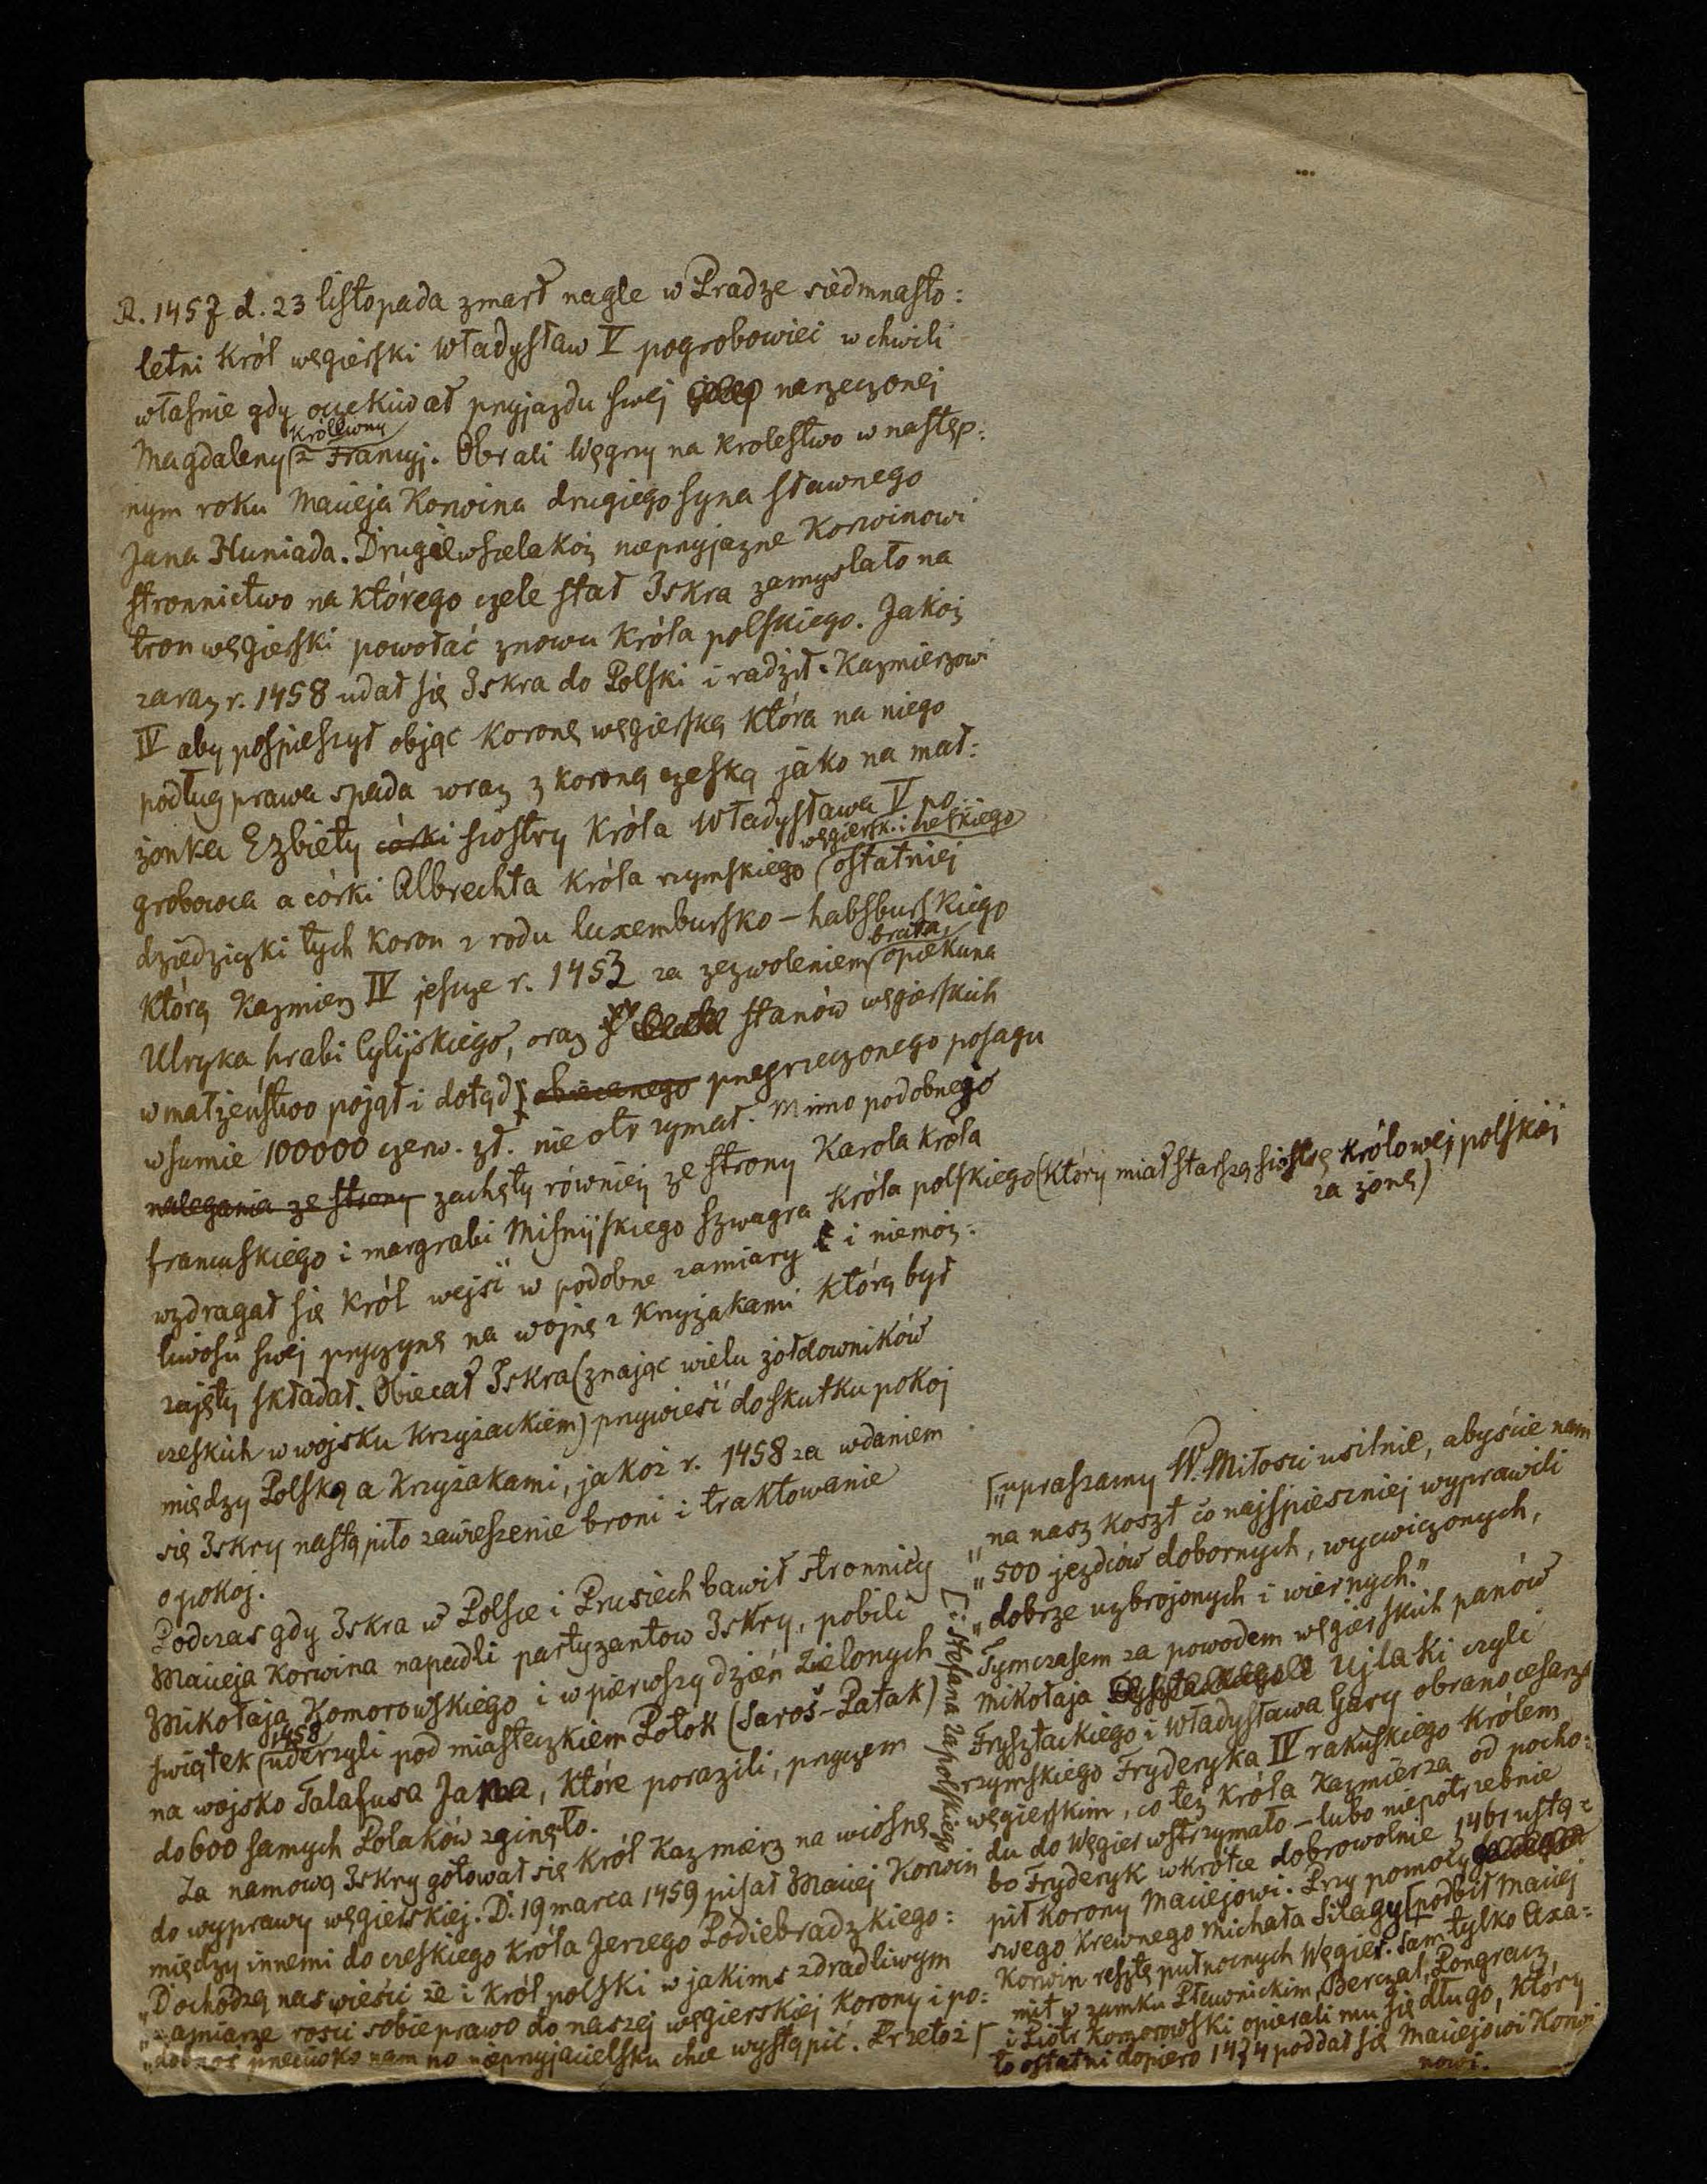 R. 1457 d. 23 listopada zmarł nagle w Pradze siedmnasto:
letni Król węgierski Władysław V pogrobowiec w chwili
własnie gdy oczekiwał przyjazdu swej narzeczonej
Królewny
Magdaleny z Francyj. Obrali Węgrzy na krolestwo w następ:
nym roku Macieja Korwina drugiego syna sławnego
Jana Huniada. Drugie wszelakoż nieprzyjazne Korwinowi
stronnictwo na którego czele stał Iskra zamyslało na
tron węgierski powołać znowu Króla polskiego. Jakoż
zaraz r. 1458 udał się Iskra do Polski i radził Kazmierzowi
IV aby pospieszył objąc Koronę węgierską która na niego
podług prawa spada wraz z koroną czeską jako na mał:
żonka Elżbiety córki siostry Króla Władysława V po
grobowca a córki Albrechta Króla rzymskiego węgiersk. i czeskiego ostatniej
dziedziczki tych Koron z rodu luxembursko - habsburskiego
którą Kazmierz IV jeszcze r. 1453 za zezwoleniem brata opiekuna
Ulryka hrabi Cylijskiego, oraz stanów węgierskich
w małżeństwo pojął i dotąd obiecanego przyrzeczonego posagu
w sumie 100000 czerw. zł. nie otrzymał. Mimo podobnego
nalegania ze strony zachęty równiej ze strony Karola króla
francuskiego i margrabi Misnijskiego szwagra Króla polskiego (który miał starszą siostrę królowej polskiej
za żonę)
wzdragał się Król wejść w podobne zamiary i niemoż:
liwości swej przyczynę na wojnę z Krzyżakami którą był
zajęty składał. Obiecał Iskra (znając wielu żołdowników
czeskich w wojsku Krzyżackiem) przywieść do skutku pokój
między Polską a Krzyżakami, jakoż r. 1458 za wdaniem
się Iskry nastąpiło zawieszenie broni i traktowanie
o pokój.
Podczas gdy Iskra w Polsce i Prusiech bawił stronnicy
Macieja Korwina napadli partyzantow Iskry, pobili
Mikołaja Komorowskiego i w pierwszy dzień Zielonych
1458
świątek uderzyli pod miasteczkiem Potok (Saroš-Patak)
na wojsko Talafusa Jana, które porazili, przyczem
do 600 samych Polaków zginęło.
Za namową Iskry gotował się Król Kazmierz na wiosnę
do wyprawy węgierskiej. D. 19 marca 1459 pisał Maciej Korwin
między innemi do czeskiego Króla Jerzego Podiebradzkiego:
„Dochodzą nas wieści że i Król polski w jakims zdradliwym
„zamiarze rosci sobie prawo do naszej węgierskiej Korony i po:
„dobnoś przeciwko nam po nieprzyjacielsku chce wystąpić. Przetoż
„upraszamy W. Miłosci usilnie, abyście nam
„na nasz koszt co najspieszniej wyprawili
„500 jezdców dobornych, wycwiczonych,
„dobrze uzbrojonych i wiernych.”
Tymczasem za powodem węgierskich panów
Mikołaja Ujlaki czyli
Frysztackiego i Władysława Gary obrano cesarza
rzymskiego Fryderyka IV rakuskiego Królem
węgierskim, co też króla Kazmierza od pocho:
du do Węgier wstrzymało - lubo niepotrzebnie
bo Fryderyk wkrótce dobrowolnie 1461 ustą:
pił Korony Maciejowi. Przy pomocy
swego krewnego Michała Silagy [podbił Maciej
Korwin resztę pułnocnych Węgier. Sam tylko Axa:
mit w zamku Pławnickim, Berczal, Pongracz
i Piotr Komorowski opierali mu się długo, który
to ostatni dopiero 1474 poddał się Maciejowi Korwi
nowi.
[i Stefana Zapolskiego